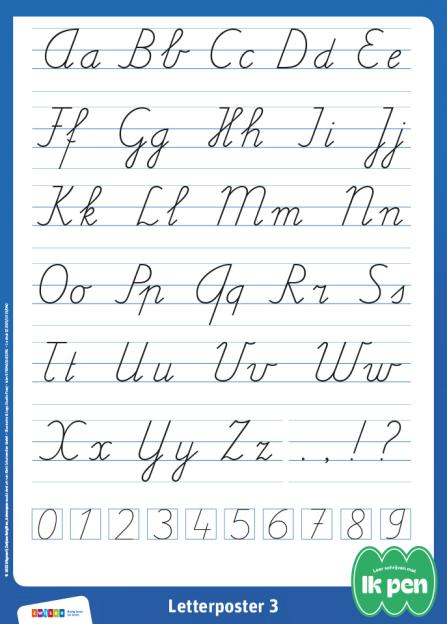 Aa Bb Cc Dd Ee
Ff Gg Hh Ii Jj
Kk Ll Mm Nn
Oo Pp Qq Rr Ss
Tt Uu Vv Ww
Xx Yy Zz . , ! ?
0 1 2 3 4 5 6 7 8 9
Leer schrijven met
Ik pen
zwijsen
Letterposter 3